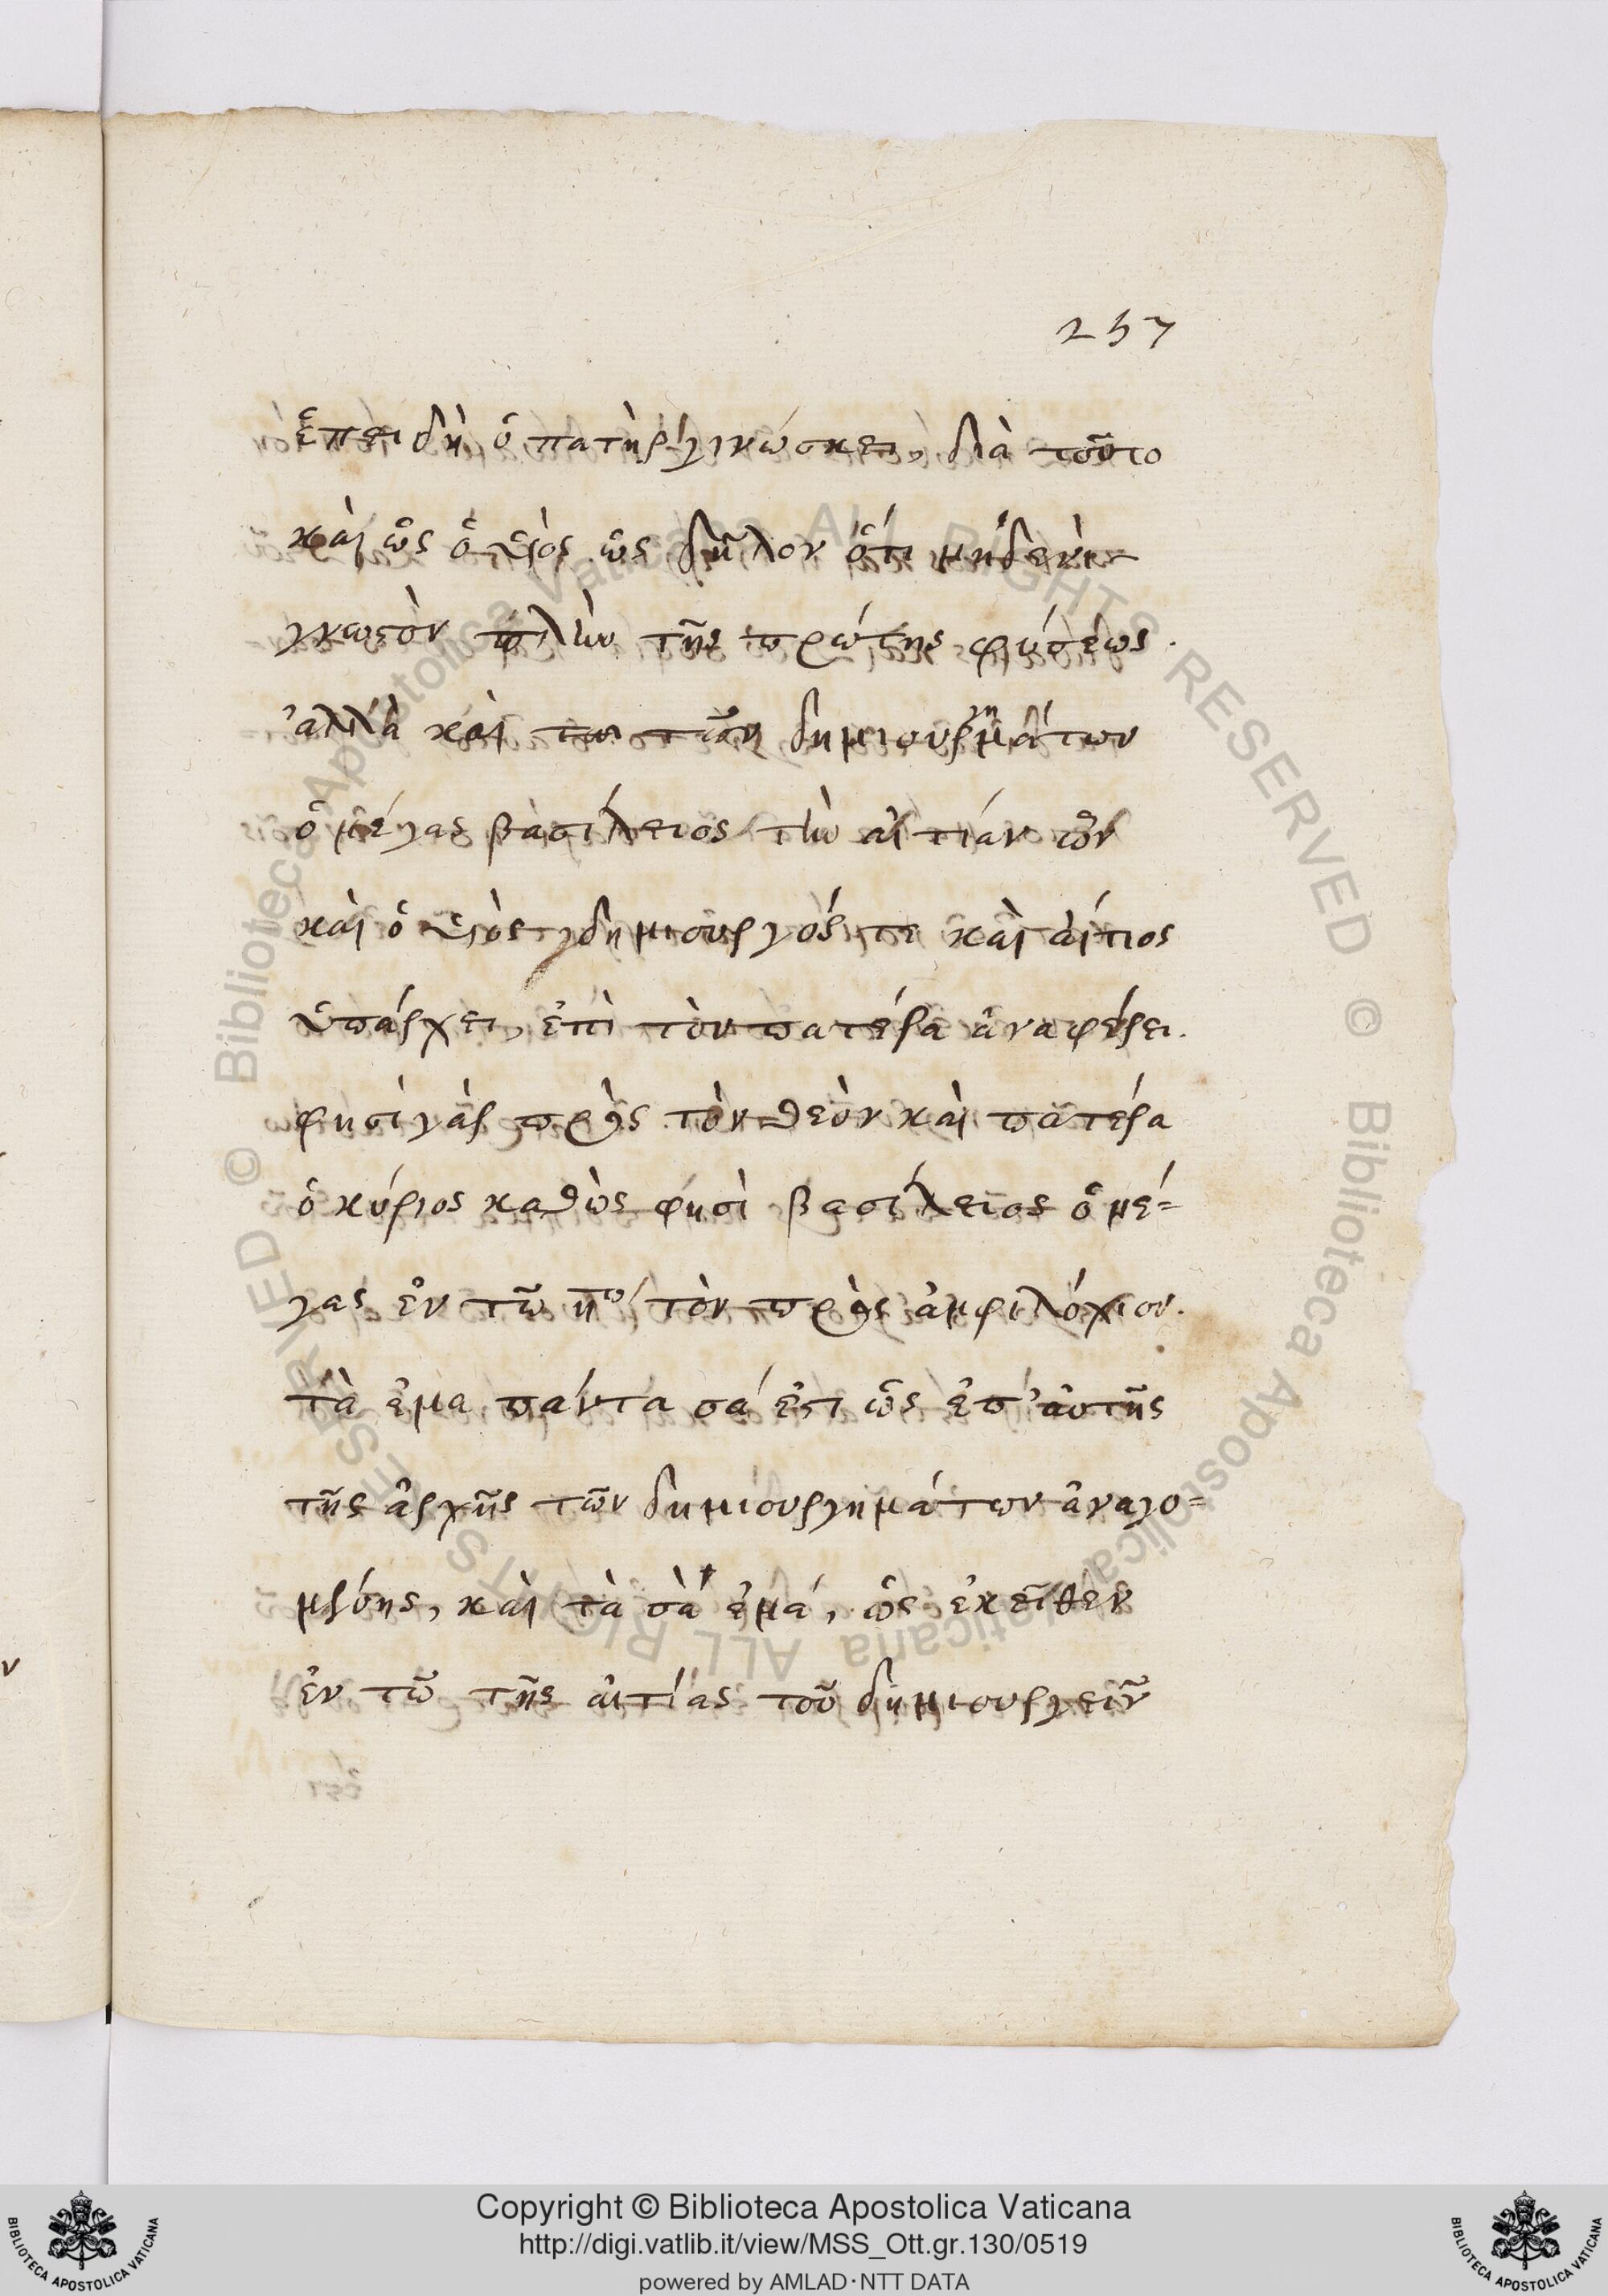 257
ἐπειδὴ ὁ πατὴρ γινώσκει, διὰ τοῦτο
καὶ ὡς ὁ υἱὸς ὡς δῆλον ὅτι μηδενὶ
γνωστὸν πλὴν τῆς πρώτης φύσεως.
ἀλλὰ καὶ των δημιουργημάτων
ὁ μέγας βασίλειος τὴν αἰτίαν ὧν
καὶ ὁ υἱὸς δημιουργός τε καὶ αἴτιος
ὑπάρχει, ἐπὶ τὸν πατέρα ἀναφέρει.
φησὶ γὰρ πρὸς τὸν θεὸν καὶ πατέρα
ὁ κύριος καθὼς φησὶ βασίλειος ὁ μέ=
γας ἐν τῶ ηῳ τὸν πρὸς ἀμφιλόχιον.
τὰ ἐμα πάντα σά ἐστι ὡς ἐπ' αὐτῆς
τῆς ἀρχῆς τῶν δημιουργημάτων ἀναγο=
μένης, καὶ τὰ σὰ ἐμά, ὡς ἐκεῖθεν
ἐν τῶ τῆς αἰτίας τοῦ δημιουργεῖν
Copyright © Biblioteca Apostolica Vaticana
http://digi.vatlib.it/view/MSS_Ott.gr.130/0519
powered by AMLAD·NTT DATA
BIBLIOTECA APOSTOLICA VATICANA
BIBLIOTECA APOSTOLICA VATICANA